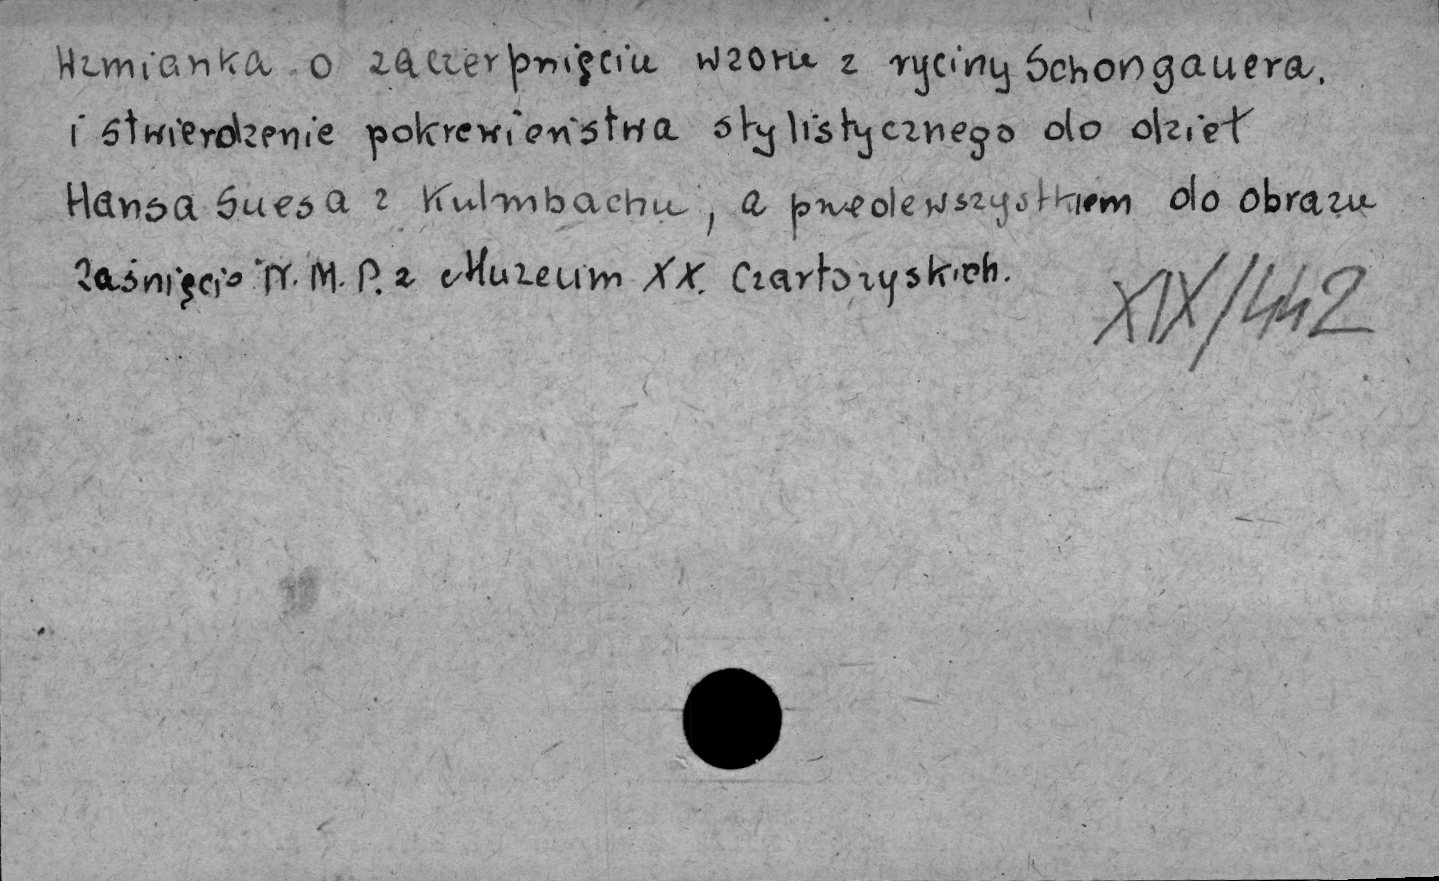 Wzmianka o zaczerpnięciu wzoru z ryciny Schongauera.
i stwierdzenie pokrewieństwa stylistycznego do dzieł
Hansa Suesa z Kulmbachu, a przedewszystkiem do obrazu
Zaśnięcie N. M. P. z Muzeum XX. Czartoryskich.
XIX/442